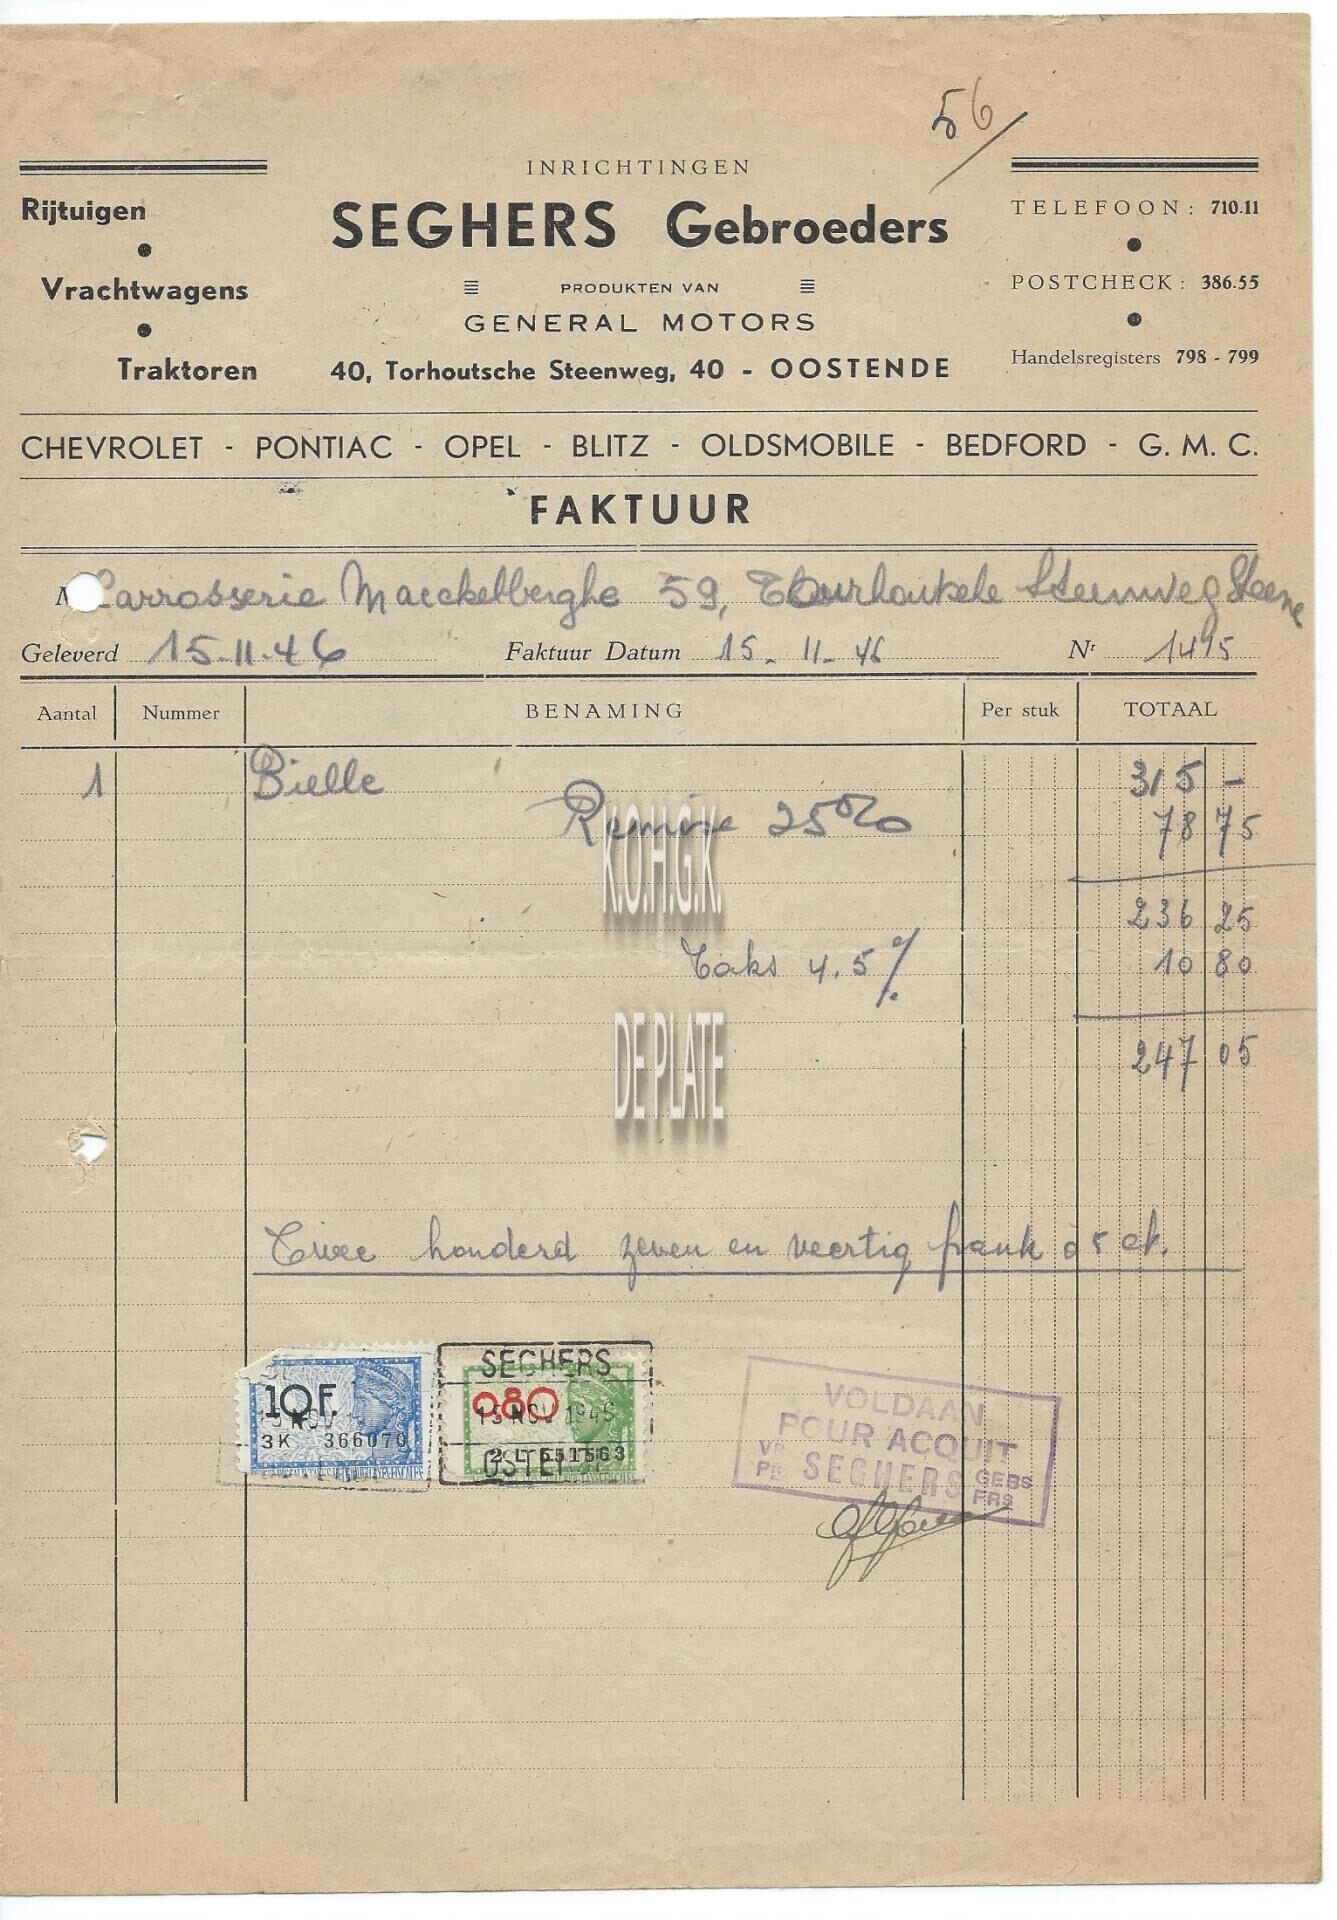 56/
INRICHTINGEN
SEGHERS Gebroeders
PRODUKTEN VAN
GENERAL MOTORS
40, Torhoutsche Steenweg, 40 - OOSTENDE
Rijtuigen
Vrachtwagens
Traktoren
TELEFOON: 710.11
POSTCHECK: 386.55
Handelsregisters 798 - 799
CHEVROLET - PONTIAC - OPEL - BLITZ - OLDSMOBILE - BEDFORD - G. M. C.
FAKTUUR
M Carrosserie Maeckelberghe 59, Steenweg Steene
Geleverd 15.11.46 Faktuur Datum 15.11.46 Nr 1495
Aantal Nummer BENAMING Per stuk TOTAAL
1 Bielle 315 -
Remise 25% 78 75
236 25
Taks 4.5% 10 80
247 05
K.O.H.G.K.
DE PLATE
Twee honderd zeven en veertig frank 05 ct.
10 F.
3K 366070
SEGHERS
0.80
15 NOV 1946
2 L 551563
OSTENDE
VOLDAAN
POUR ACQUIT
VR PR SEGHERS GEBS FRS